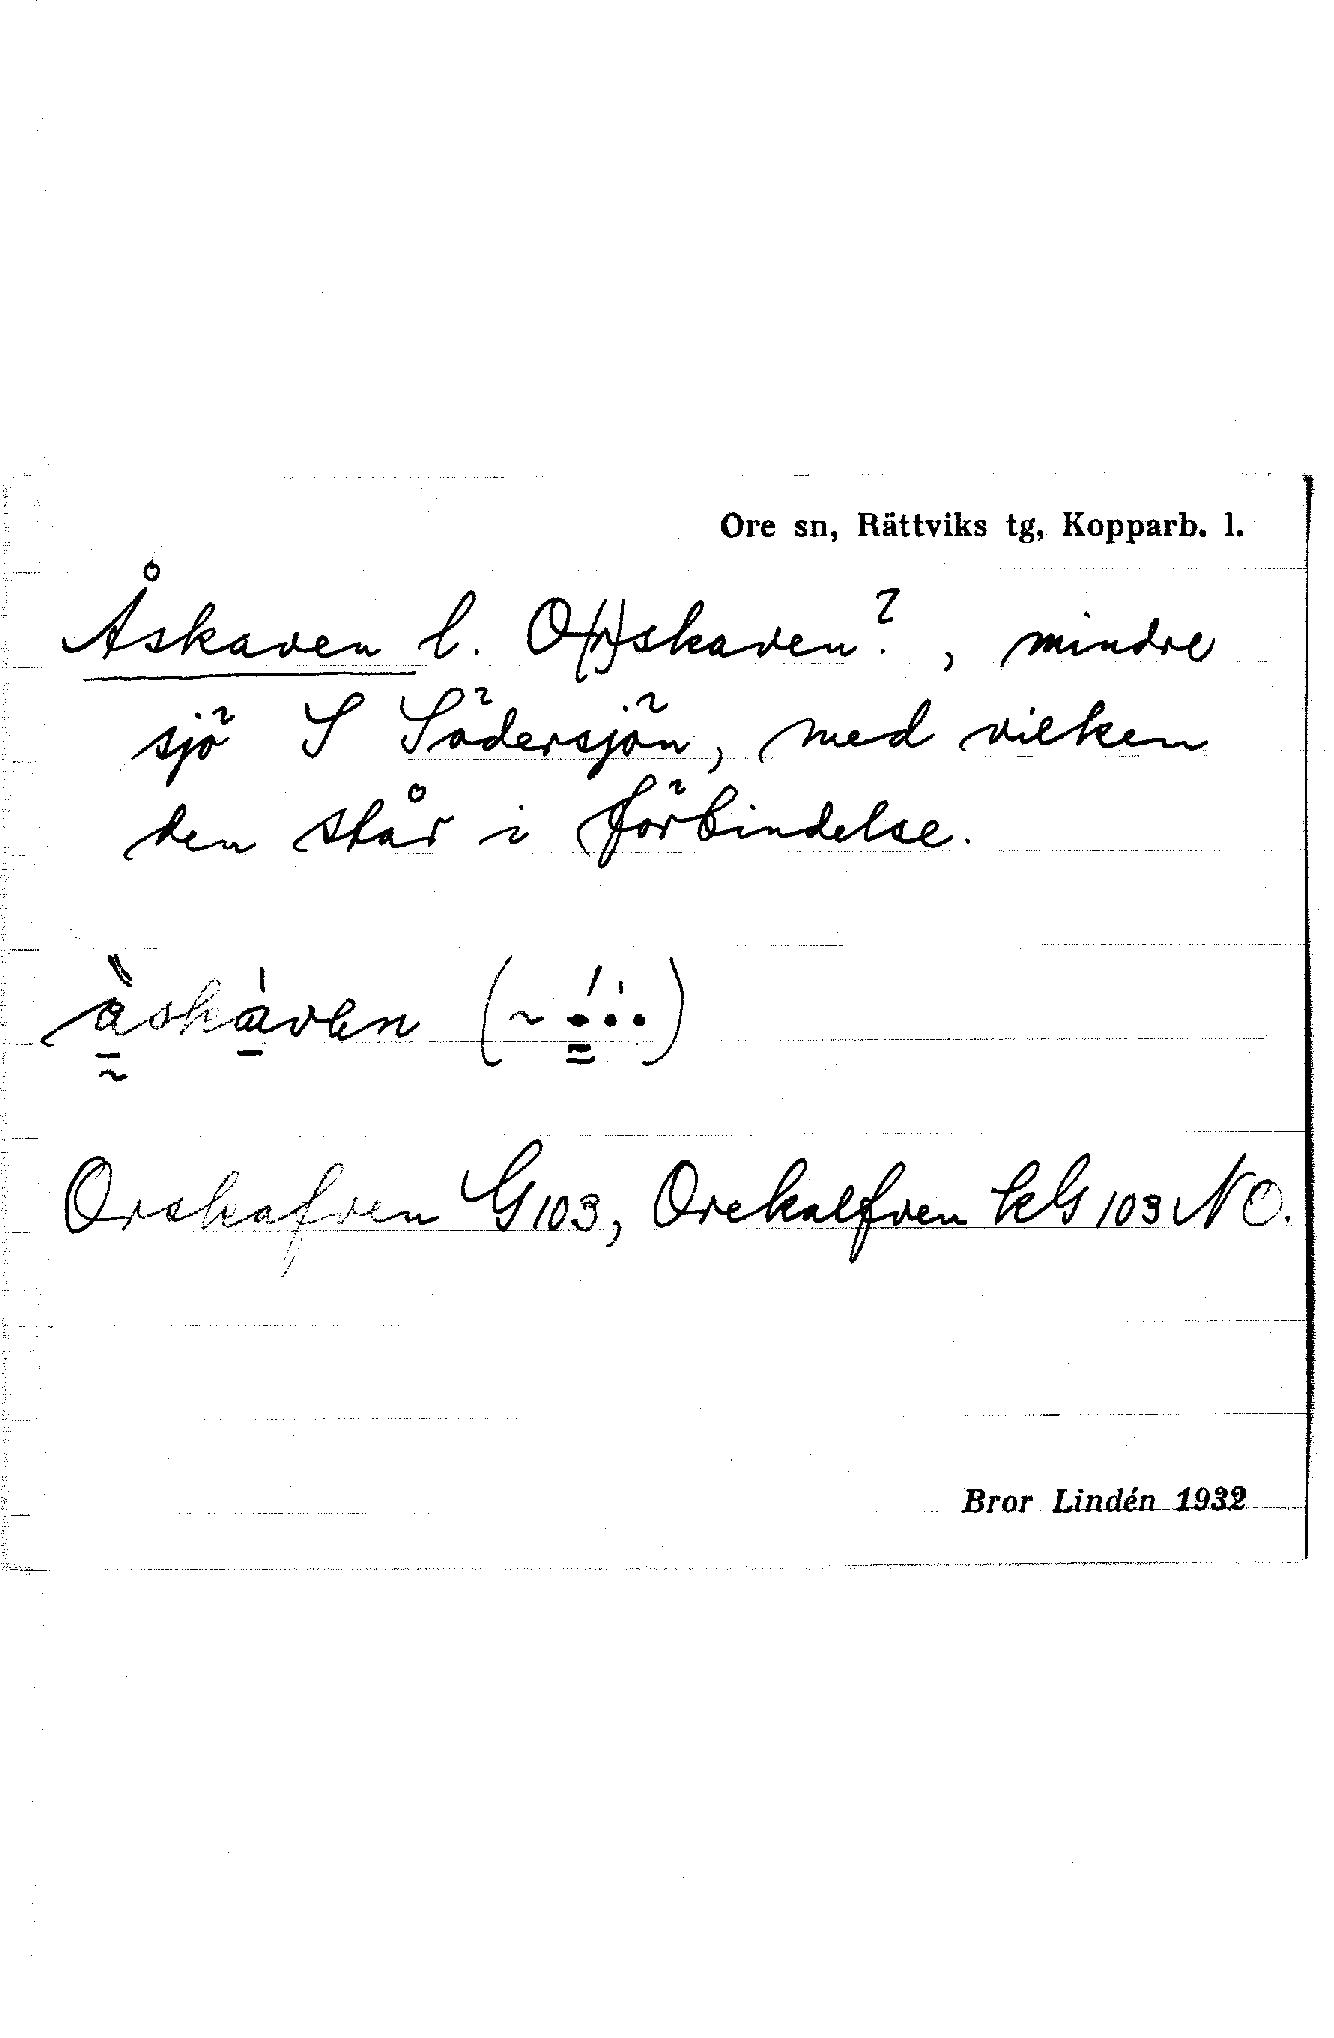 Ore sn, Rättviks tg, Kopparb. l.
Åskaven l. O(r)skaven?, mindre
sjö S Södersjön, med vilken
den står i förbindelse.
åskaven
Orskafven G 103, Orekalfven kG 103 NO.
Bror Lindén 1932